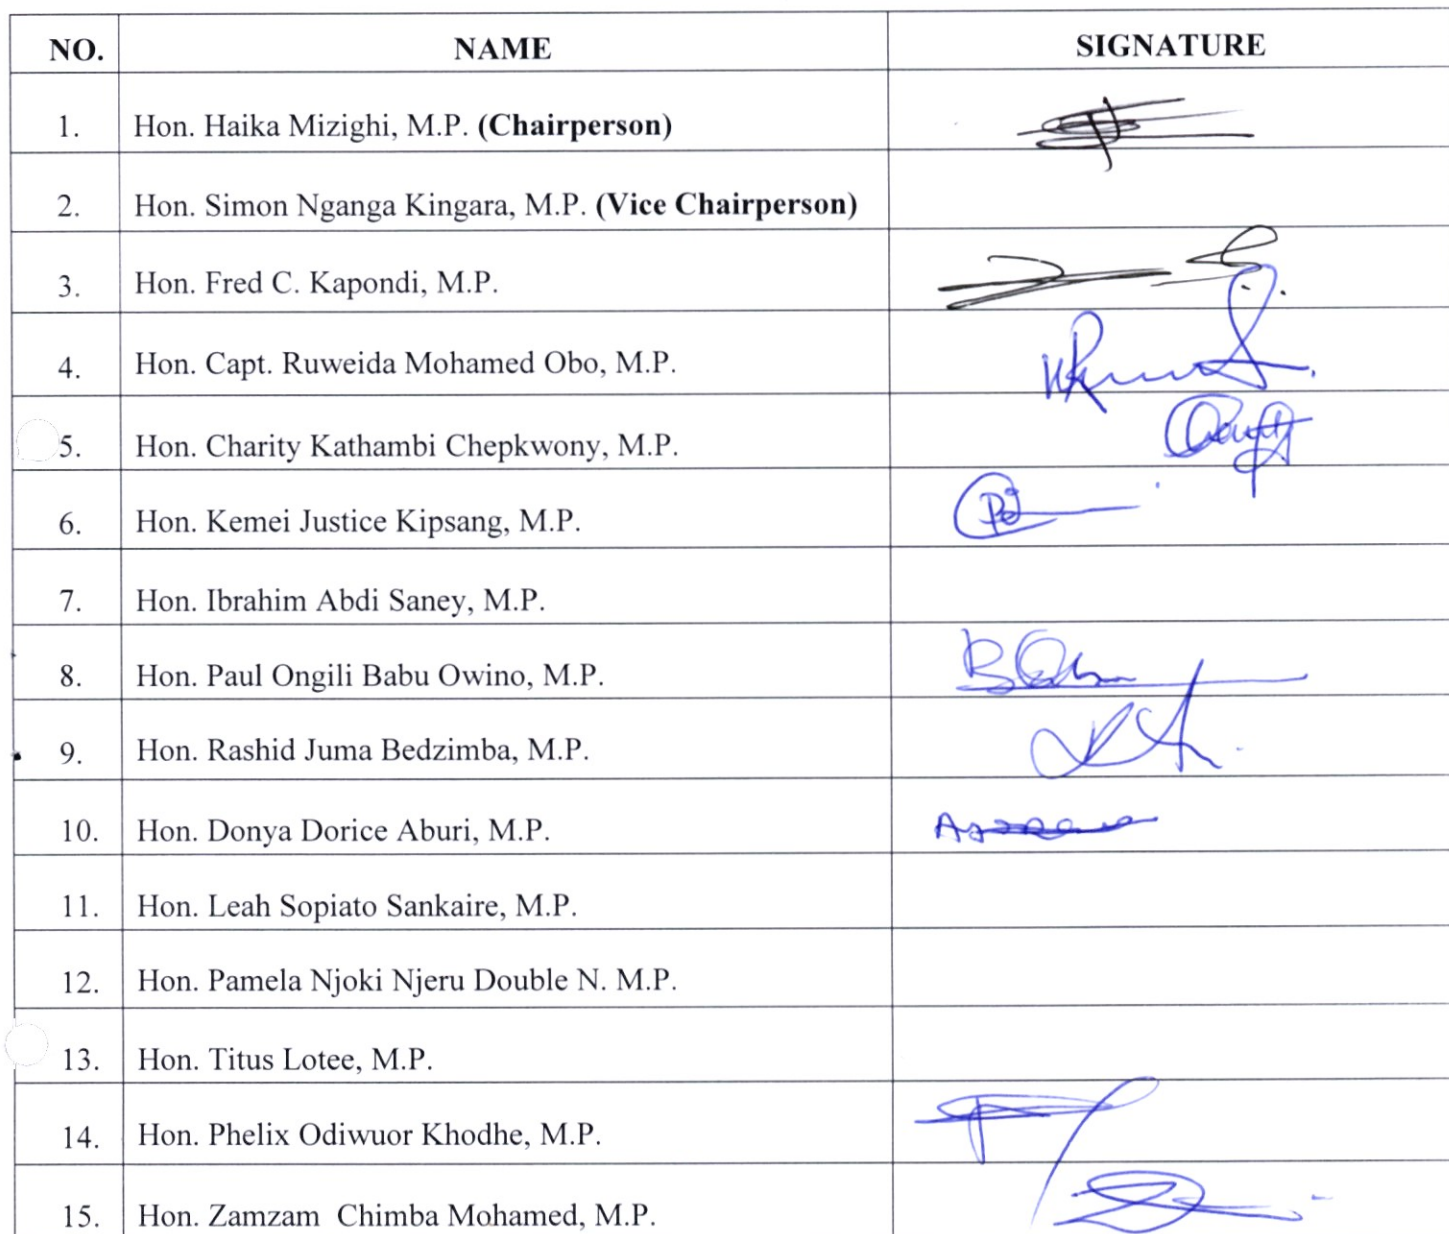 NO. NAME SIGNATURE
1. Hon. Haika Mizighi, M.P. (Chairperson)
2. Hon. Simon Nganga Kingara, M.P. (Vice Chairperson)
3. Hon. Fred C. Kapondi, M.P.
4. Hon. Capt. Ruweida Mohamed Obo, M.P.
5. Hon. Charity Kathambi Chepkwony, M.P.
6. Hon. Kemei Justice Kipsang, M.P.
7. Hon. Ibrahim Abdi Saney, M.P.
8. Hon. Paul Ongili Babu Owino, M.P.
9. Hon. Rashid Juma Bedzimba, M.P.
10. Hon. Donya Dorice Aburi, M.P.
11. Hon. Leah Sopiato Sankaire, M.P.
12. Hon. Pamela Njoki Njeru Double N. M.P.
13. Hon. Titus Lotee, M.P.
14. Hon. Phelix Odiwuor Khodhe, M.P.
15. Hon. Zamzam Chimba Mohamed, M.P.